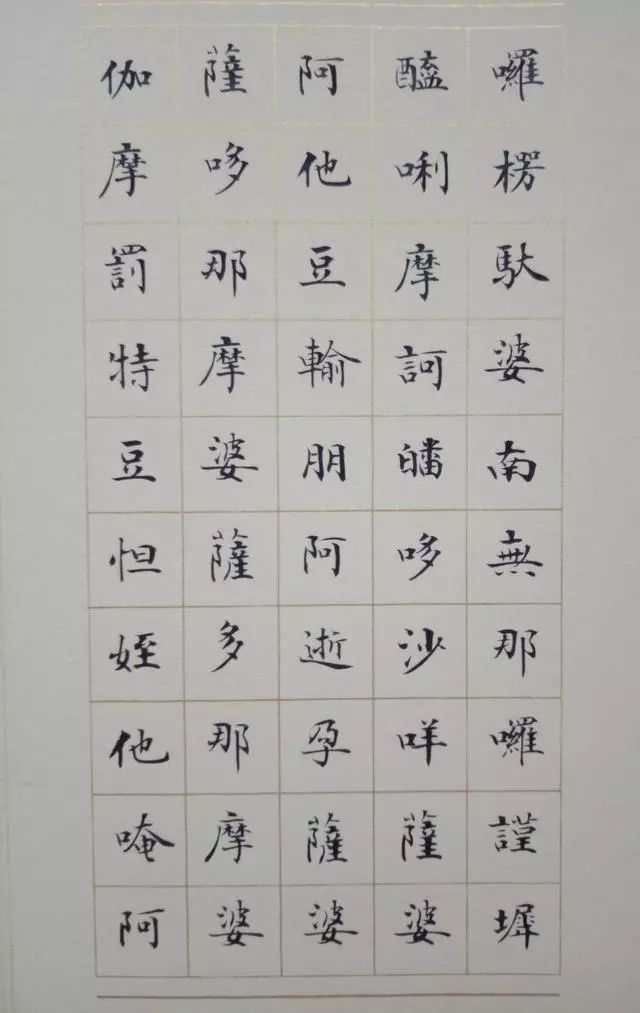 囉楞馱婆南無那囉謹墀
醯唎摩訶皤哆沙咩薩婆
阿他豆輸朋阿逝孕薩婆
薩哆那摩婆薩多那摩婆
伽摩罰特豆怛姪他唵阿